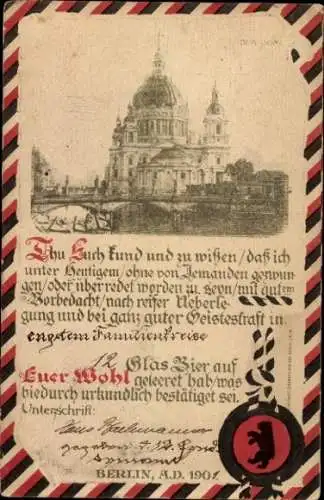 Thu Euch kund und zu wißen/daß ich
unter Heutigem/ohne von Jemanden gezwun-
gen/oder überredet worden zu seyn/mit gutem
Vorbedacht/nach reifer Ueberle-
gung und bei ganz guter Geisteskraft in
engstem Familienkreise
12 Glas Bier auf
Euer Wohl geleeret hab/was
hiedurch urkundlich bestätiget sei.
Unterschrift:
Hans
BERLIN, A.D. 1901